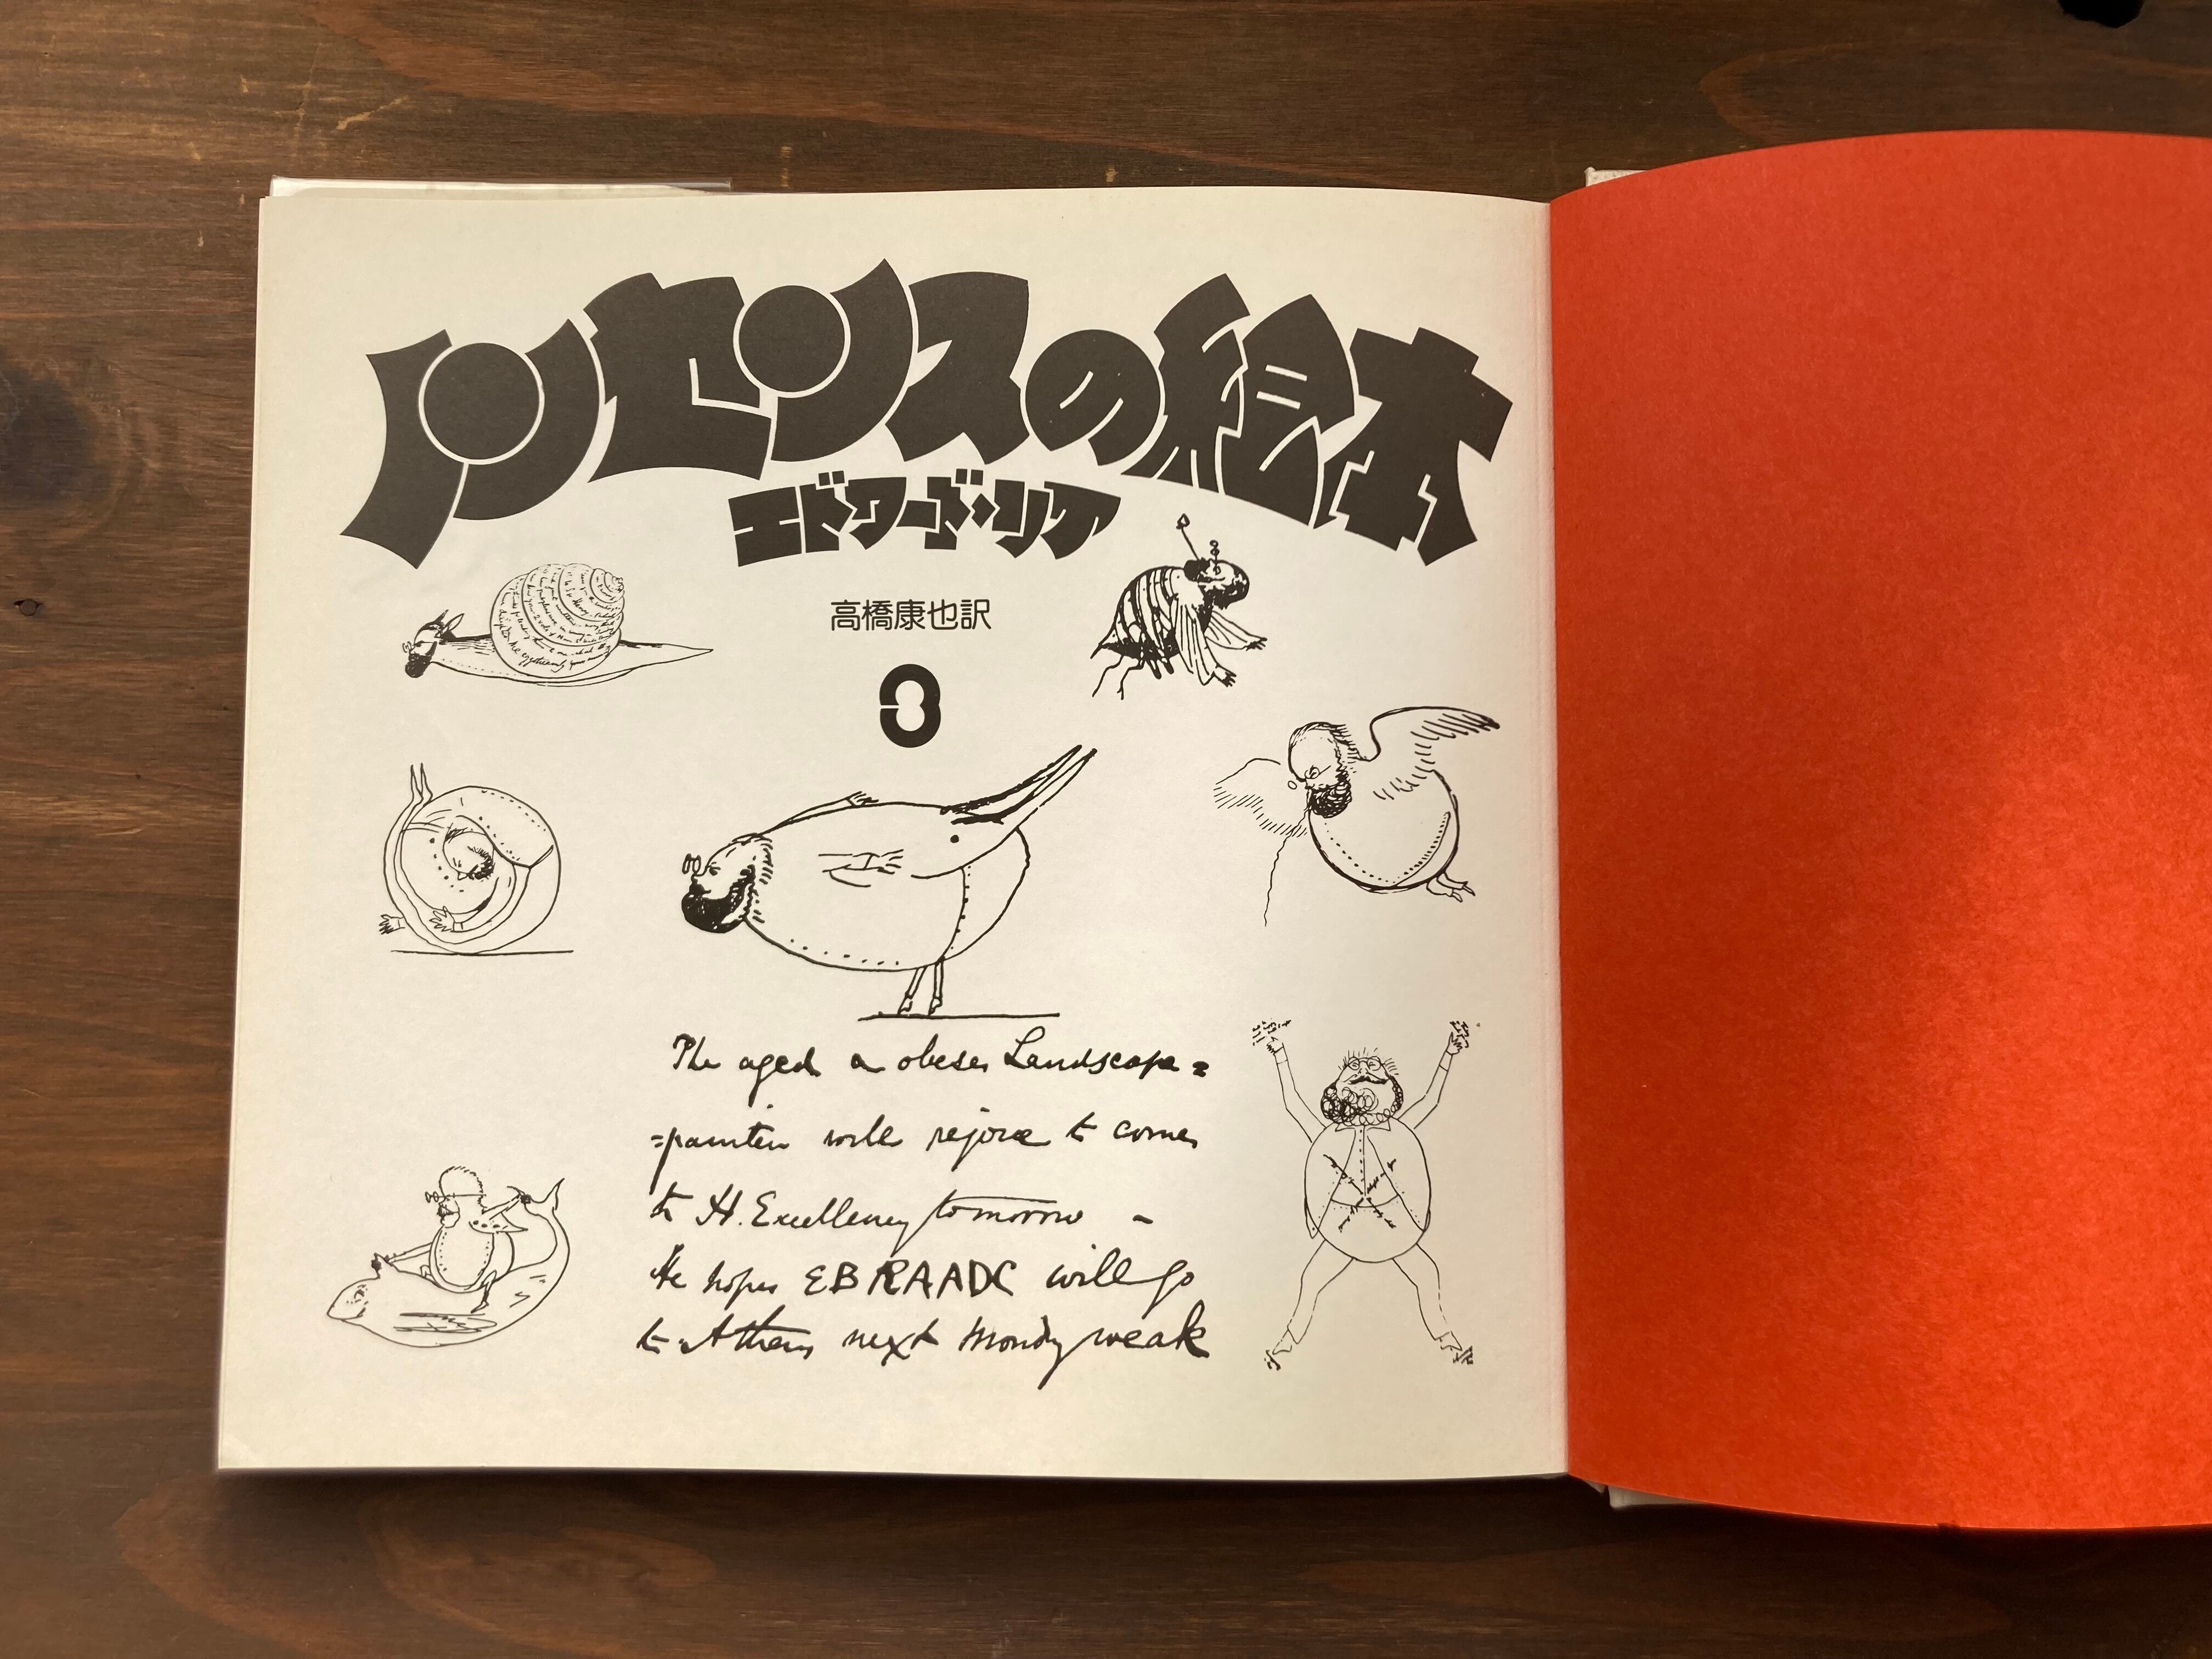 ノンセンスの絵本
エドワード・リア
高橋康也訳
The aged & obese Landscape=
=painter will rejoice to come
to H. Excellency tomorrow -
He hopes EBRAADC will go
to Athens next Mondy weak